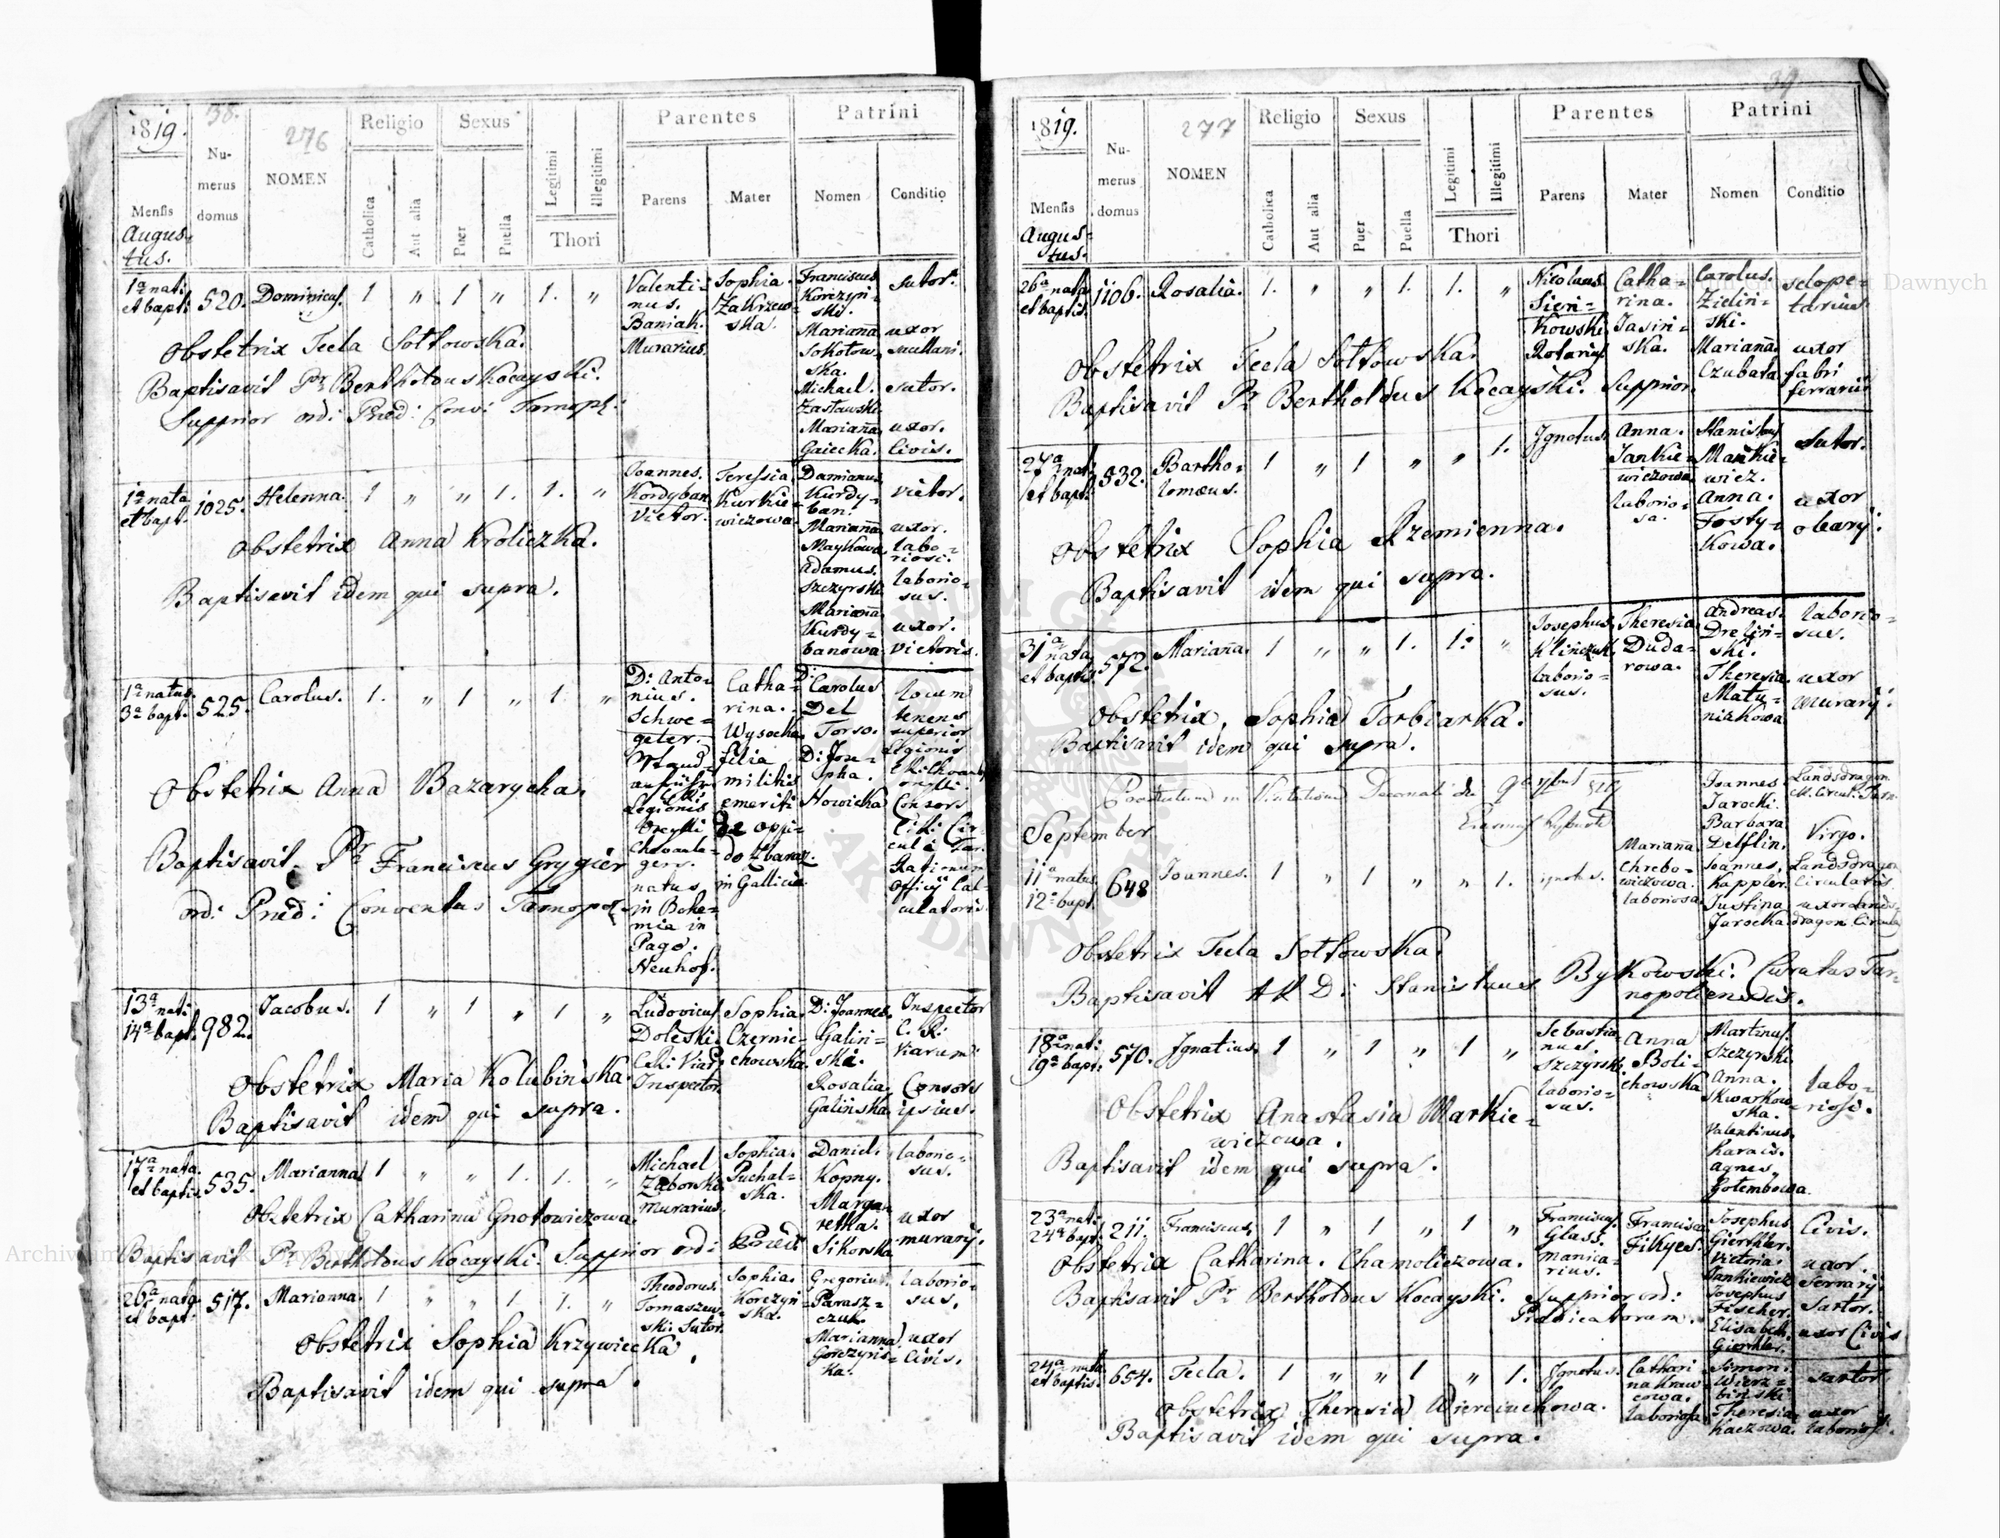 1819.
38.
276
Numerus domus
NOMEN
Religio
Catholica
Aut alia
Sexus
Puer
Puella
Legitimi
Illegitimi
Thori
Parentes
Parens
Mater
Patrini
Nomen
Conditio
Mensis
Augus-
tus.
1a nat:
et bapt:
520.
Dominicus.
1 " 1 " 1. "
Valenti-
nus.
Baniak.
Murarius.
Sophia.
Zakrzew-
ska.
Franciscus
Korczyń-
ski.
Marianna
Sokołow-
ska.
Michael.
Zasławski.
Marianna
Gaiecka.
Sutor.
uxor
sutor.
uxor.
Civis.
Obstetrix Tecla Sołtowska.
Baptisavit Pr Bertholdus Kocayski.
Supprior ord: Præd: Conv: Tarnopl:
1a nata
et bapt.
1025.
Helenna.
1 " " 1. 1. "
Joannes.
Kordyban
Vietor.
Teressia.
Kurkie-
wiczowa.
Damianus
Kurdy-
ban.
Marianna
Maykowa
Adamus.
Szczyrski
Marianna
Kurdy-
banowa
vietor.
uxor.
labo-
riosi.
laborio-
sus.
uxor.
Vietoris.
Obstetrix Anna Kroliczka.
Baptisavit idem qui supra.
1a natus
3a bapt.
525.
Carolus.
1. " 1 " 1. "
D: Anto-
nius.
Schwe-
geter.
Legionis
natus
in Bohe-
mia in
Pago.
Neuhof.
Catha-
rina.
Wysocka
filia
militis
emeriti
de oppi-
do Zbaraz.
in Gallicia
D: Carolus
Del
Torso.
D: Jose-
pha.
Nowicka
locum
tenens
superior
Legionis
Consors
Obstetrix Anna Bazarycha.
Baptisavit Pr Franciscus Grygier
ord: Præd: Conventus Tarnopol
13a nat:
14a bapt.
982.
Jacobus.
1 " 1 " 1 "
Ludovicus
Doleski.
C.R: Viar:
Inspector.
Sophia.
Czernie-
chowska.
D: Joannes.
Galiń-
ski.
Rosalia.
Galińska.
Inspector
C. R:
viarum:
Consors
ipsius.
Obstetrix Maria Kolubińska.
Baptisavit idem qui supra.
17a nata.
et baptis.
535.
Marianna
1 " " 1. 1. "
Michael
Zaborski
Murarius.
Sophia.
Puchal-
ska.
Daniel.
Kopny.
Marga-
retha.
Sikorska
laborio-
sus.
uxor
murarÿ.
Obstetrix Catharina Gnotowiczowa
Baptisavit Pr Bertholdus Kocayski. Supprior ord: Præd:
26a nata
et bapt:
517.
Marianna.
1 " " 1. 1. "
Theodorus.
Tomaszew-
ski Sutor.
Sophia.
Korczyń-
ska.
Gregorius.
Parasz-
czuk.
Marianna
Gorczyńs-
ka.
laborio-
sus.
uxor
Civis.
Obstetrix Sophia Krzywiecka.
Baptisavit idem qui supra.
1819.
39
277
Numerus domus
NOMEN
Religio
Catholica
Aut alia
Sexus
Puer
Puella
Legitimi
Illegitimi
Thori
Parentes
Parens
Mater
Patrini
Nomen
Conditio
Mensis
Augus-
tus.
26a nata
et baptis.
1106.
Rosalia.
1. " " 1. 1. "
Nicolaus
Sień-
kowski
Rotarius
Catha-
rina.
Jasiń-
ska.
Carolus.
Zieliń-
ski.
Marianna
Czubata
sclope-
tarius
uxor
fabri
ferrarii
Obstetrix Tecla Sołtowska.
Baptisavit Pr Bertholdus Kocayski. Supprior.
27a nat:
et bapt:
832.
Bartho-
lomæus.
1 " 1 " " 1.
Ignotus
Anna.
Jankie-
wiczowa
laborio-
sa.
Stanislaus
Mańkie-
wicz.
Anna.
Tosty-
kowa.
Sutor.
uxor
olearÿ.
Obstetrix Sophia Rzemienna.
Baptisavit idem qui supra.
31a nata
et baptis.
572.
Marianna.
1 " " 1. 1. "
Josephus
Klimczuk.
laborio-
sus.
Theresia
Duda-
rowa.
Andreas.
Dreliń-
ski.
Theresia.
Matu-
nizkowa
laborio-
sus.
uxor
murarÿ.
Obstetrix, Sophia Torbiarka.
Baptisavit idem qui supra.
September
11a natus
12a bapt.
648
Joannes.
1 " 1 " " 1.
ignotus.
Marianna
Chrebo-
wiczowa.
laboriosa
Joannes
Jarocki.
Barbara
Delfin.
Joannes.
Kappler
Justina
Jarocka
Landsdragon
Virgo.
Landsdragon
Circularis.
uxor Lands-
dragon Circula
Obstetrix Tecla Sołtowska.
Baptisavit AR D: Stanislaus Bykowski. Curatus Tar-
nopoliensis.
18a nat:
19a bapt.
570.
Ignatius
1 " 1 " 1 "
Sebastia-
nus.
Szczyrski
laborio-
sus.
Anna
Boli-
chowska
Martinus.
Szczyrski.
Anna.
Skwarkow-
ska.
Valentinus.
Karaid.
Agnes.
Gołembowa.
labo-
riosi.
Obstetrix Anastasia Markie-
wiczowa.
Baptisavit idem qui supra.
23a nat:
24a bapt.
211.
Franciscus
1 " 1 " 1 "
Franciscus
Glass.
manica-
rius.
Francisca
Fikyes.
Josephus
Gierthler.
Victoria.
Jankiewicz
Josephus
Fischer.
Elisabeth.
Gierthler.
Civis.
uxor.
serrarÿ.
Sartor.
uxor Civis
Obstetrix Catharina. Chamoliczowa.
Baptisavit Pr Bertholdus Kocayski. Supprior ord:
Prædicatorum.
24a nata
et baptis.
654.
Tecla.
1 " " 1 " 1.
Ignotus.
Cathari
na Kraw
cowa.
laboriosa
Simon.
Wierz-
biński
Theresia
Kaczowa.
sartor
uxor
laboriosi.
Obstetrix Theresia Wierciuchowa.
Baptisavit idem qui supra.